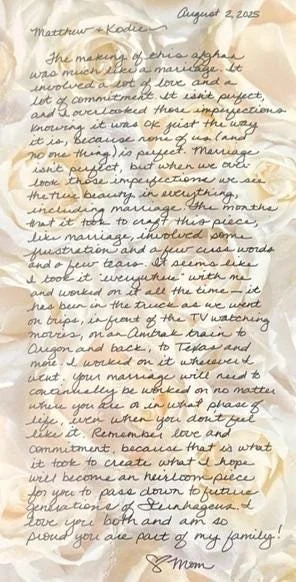 August 2, 2025
Matthew & Kodie
The making of this afghan
was much like a marriage. It
involved a lot of love and a
lot of commitment. It isn't perfect,
and I overlooked those imperfections
knowing it was OK just the way
it is, because none of us (and
no one thing) is perfect. Marriage
isn't perfect, but when we over
look those imperfections we see
the true beauty in everything,
including marriage. The months
that it took to craft this piece,
like marriage, involved some
frustration and a few cuss words
and a few tears. It seems like
I took it "everywhere" with me
and worked on it all the time – it
has been in the truck as we went
on trips, in front of the TV watching
movies, on an Amtrak train to
Oregon and back, to Texas and
more. I worked on it wherever I
went. Your marriage will need to
continually be worked on no matter
where you are or in what phase of
life, even when you don't feel
like it. Remember love and
commitment, because that is what
it took to create what I hope
will become an heirloom piece
for you to pass down to future
generations of Steinhagens. I
love you both and am so
proud you are part of my family!
Mom